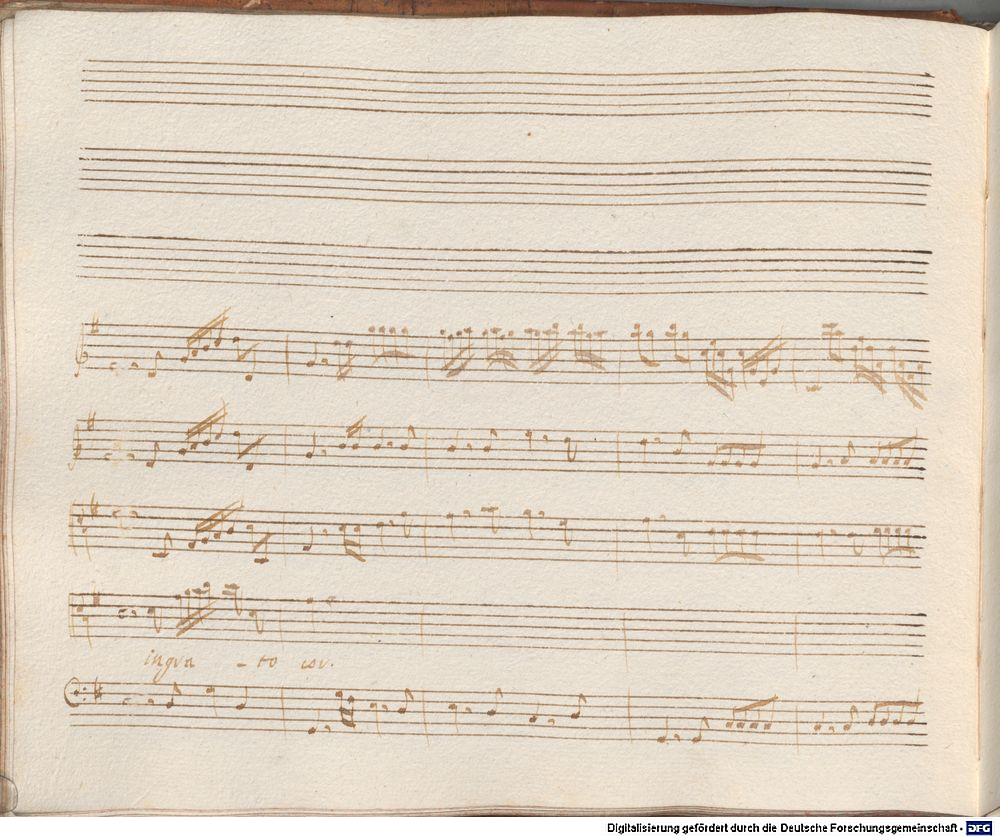 ingra - to cor.
Digitalisierung gefördert durch die Deutsche Forschungsgemeinschaft - DFG